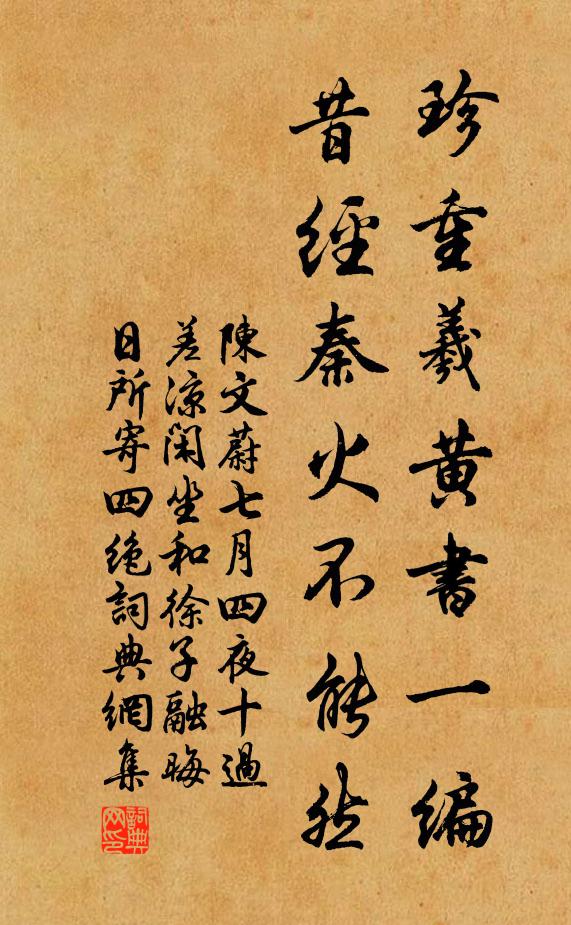 珍重羲黄書一编
昔經秦火不能然
陳文蔚七月四夜十過
差凉閑坐和徐子融晦
日所寄四绝詞典網集
詞典网印